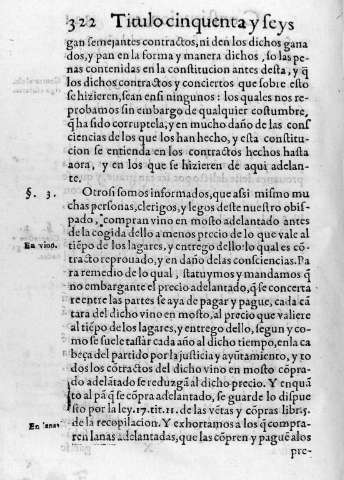 322 Titulo cinquenta y seys
gan semejantes contractos, ni den los dichos gana
dos, y pan en la forma y manera dichos, so las pe
nas contenidas en la constitucion antes desta, y q̃
los dichos contractos y conciertos que sobre esto
se hizieren, sean en si ningunos: los quales nos re
probamos sin embargo de qualquier costumbre,
q̃ ha sido corruptela, y en mucho daño de las cons
ciencias de los que los han hecho, y esta constitu
cion se entienda en los contractos hechos hasta
aora, y en los que se hizieren de aqui adelan-
te.
§. 3. Otrosi somos informados, que assi mismo mu
chas personas, clerigos, y legos deste nuestro obis
pado, compran vino en mosto adelantado antes
de la cogida dello a menos precio de lo que vale al
En vino. tiẽpo de los lagares, y entrego dello: lo qual es cõ
tracto reprouado, y en daño de las consciencias. Pa
ra remedio de lo qual, statuymos y mandamos q̃
no embargante el precio adelantado, q̃ se concerta
re entre las partes se aya de pagar y pague, cada cã
tara del dicho vino en mosto, al precio que valiere
al tiẽpo de los lagares, y entrego dello, segun y co-
mo se suele tassar cada año al dicho tiempo, en la ca
beça del partido por la justicia y ayũtamiento, y to
dos los cõtractos del dicho vino en mosto cõpra-
do adelãtado se reduzgã al dicho precio. Y en quã
to al pã q̃ se cõpra adelantado, se guarde lo dispue
sto por la ley. 17. tit. 11. de las vẽtas y cõpras libr. 5.
En lanas de la recopilacion. Y exhortamos a los q̃ compra-
ren lanas adelantadas, que las cõpren y paguẽ a los
pre-